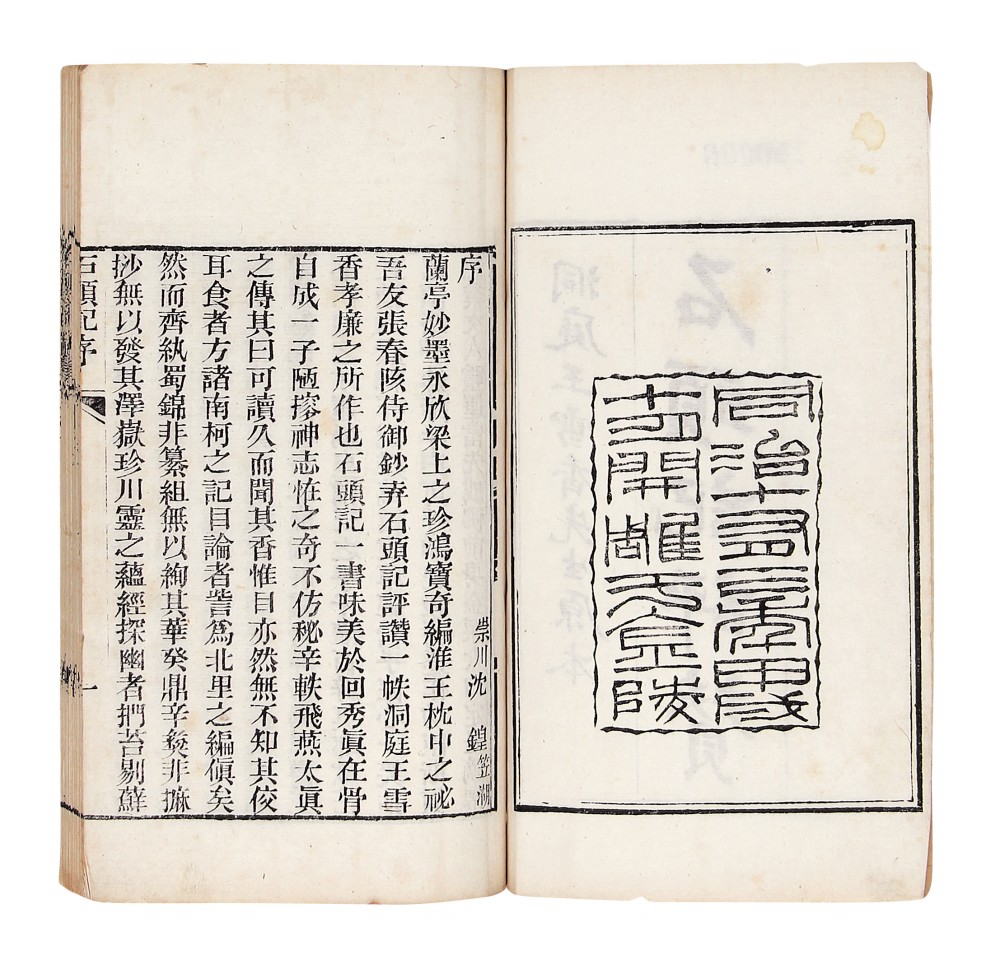 同治十有三年甲戌
開雕於金陵
序
崇川沈 鍠笠湖
蘭亭妙墨永欣梁上之珍鴻寶奇編淮王枕中之祕
吾友張春陔侍御鈔弆石頭記評讚一帙洞庭王雪
香孝廉之所作也石頭記一書味美於回秀眞在骨
自成一子陋搜神志恠之奇不仿秘辛軼飛燕太眞
之傳其曰可讀久而聞其香惟目亦然無不知其佼
耳食者方諸南柯之記目論者訾爲北里之編傎矣
然而齊紈蜀錦非纂組無以絢其華癸鼎辛彜非摩
挱無以發其澤嶽珍川靈之蘊經探幽者捫苔剔蘚
石頭記序
一